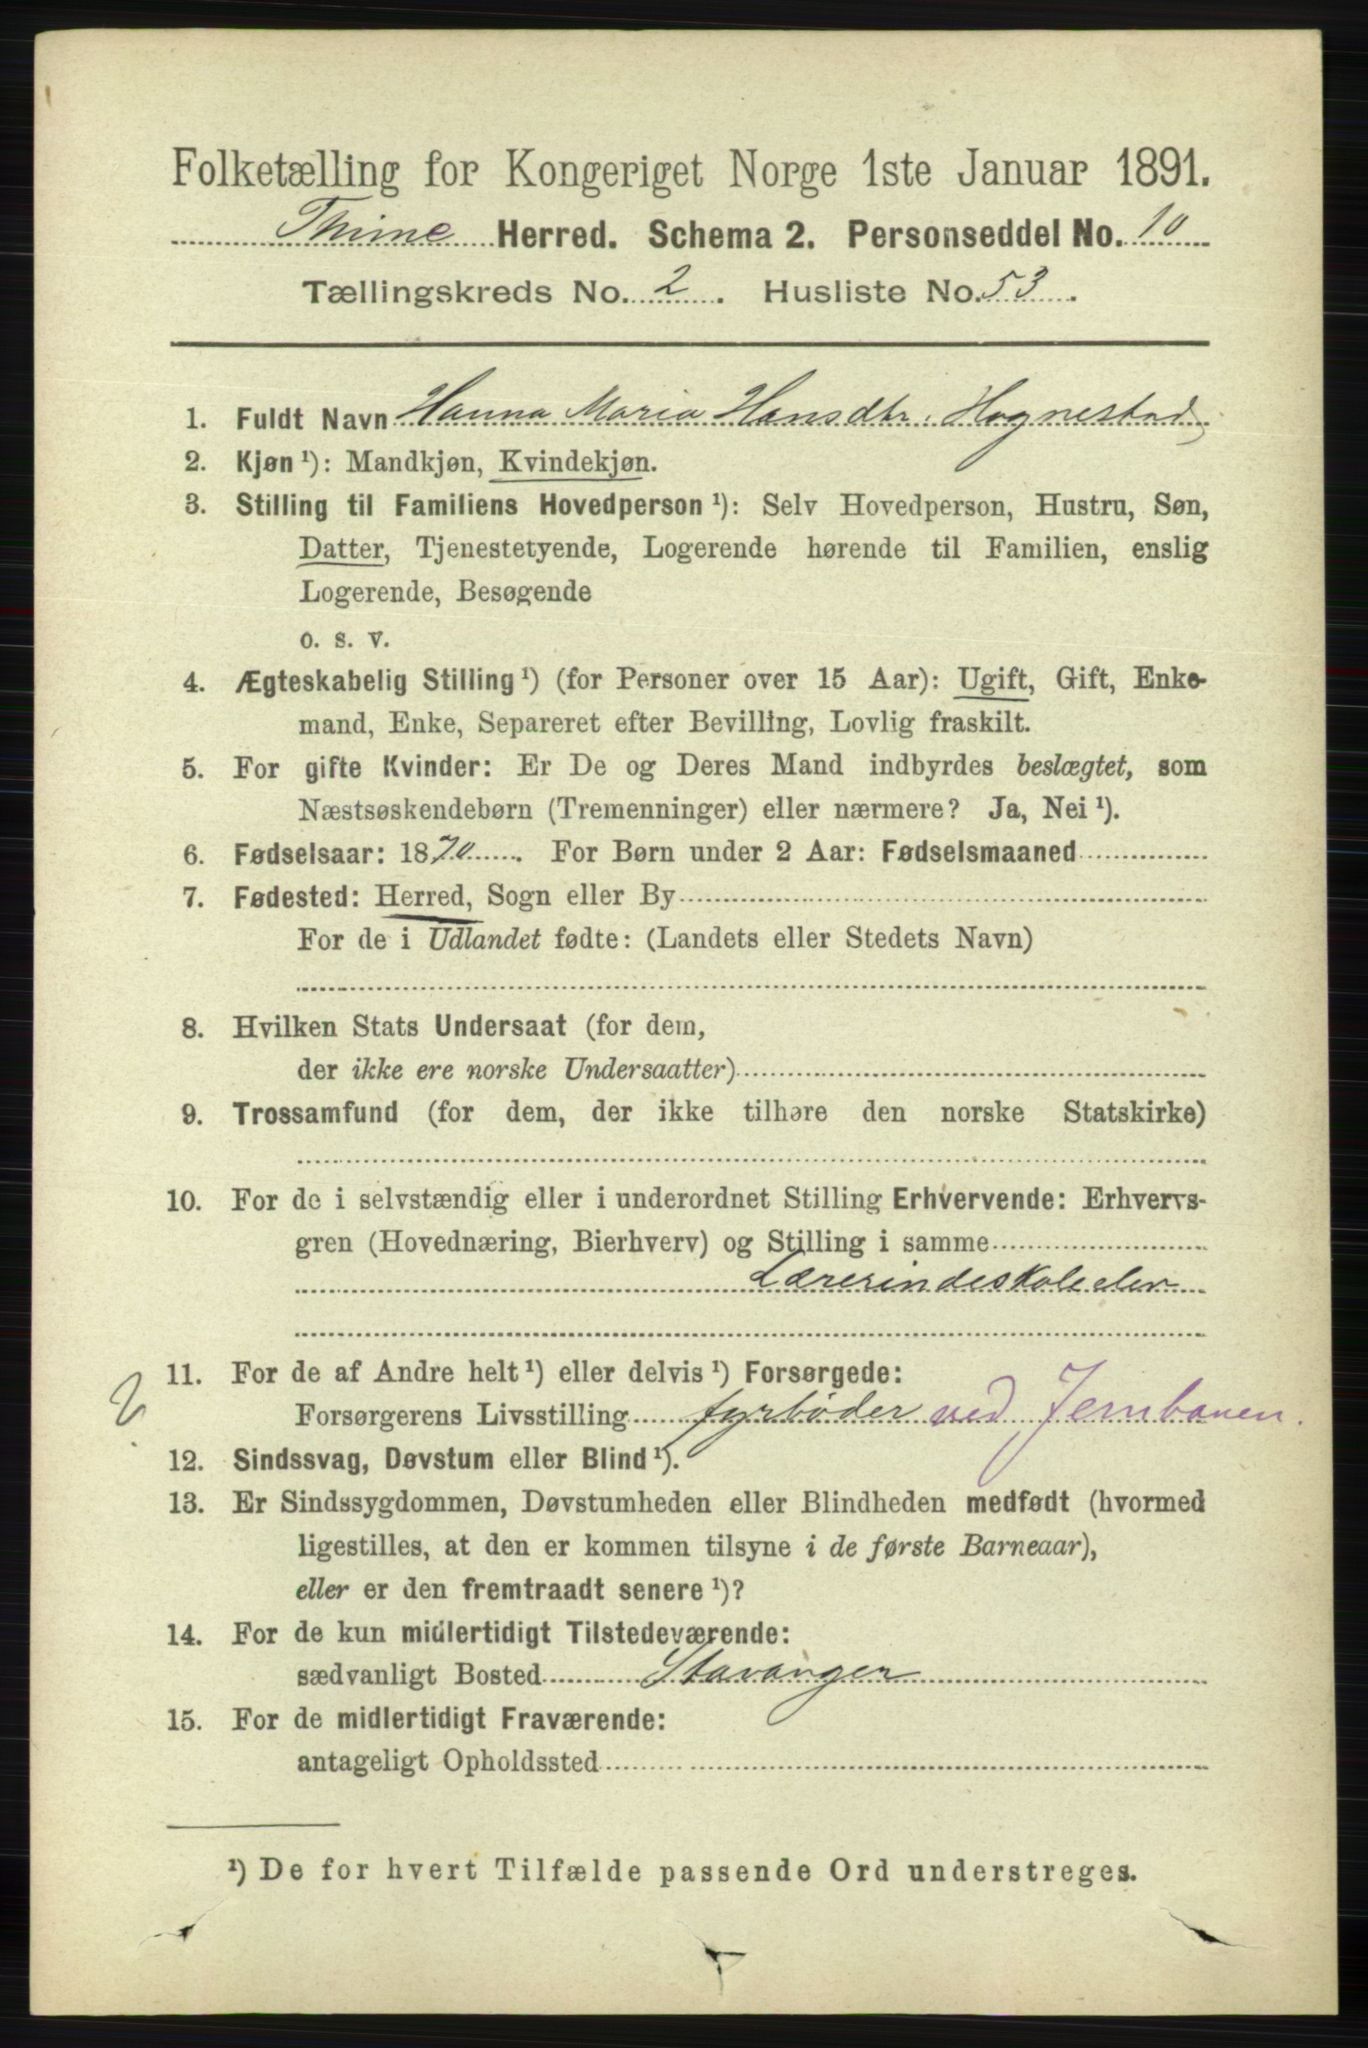 Folketælling for Kongeriget Norge 1ste Januar 1891.
Thime Herred. Schema 2. Personseddel No. 10
Tællingskreds No. 2. Husliste No. 53.
1. Fuldt Navn Hanna Maria Hansdtr. Hognestad
2. Kjøn ¹): Mandkjøn, Kvindekjøn.
3. Stilling til Familiens Hovedperson ¹): Selv Hovedperson, Hustru, Søn,
Datter, Tjenestetyende, Logerende hørende til Familien, enslig
Logerende, Besøgende
o. s. v.
4. Ægteskabelig Stilling ¹) (for Personer over 15 Aar): Ugift, Gift, Enke-
mand, Enke, Separeret efter Bevilling, Lovlig fraskilt.
5. For gifte Kvinder: Er De og Deres Mand indbyrdes beslægtet, som
Næstsøskendebørn (Tremenninger) eller nærmere? Ja, Nei ¹).
6. Fødselsaar: 1870. For Børn under 2 Aar: Fødselsmaaned
7. Fødested: Herred, Sogn eller By
For de i Udlandet fødte: (Landets eller Stedets Navn)
8. Hvilken Stats Undersaat (for dem,
der ikke ere norske Undersaatter)
9. Trossamfund (for dem, der ikke tilhøre den norske Statskirke)
10. For de i selvstændig eller i underordnet Stilling Erhvervende: Erhvervs-
gren (Hovednæring, Bierhverv) og Stilling i samme
Lærerindeskoleelev
11. For de af Andre helt ¹) eller delvis ¹) Forsørgede:
2 Forsørgerens Livsstilling fyrbøder ved Jernbanen.
12. Sindssvag, Døvstum eller Blind ¹).
13. Er Sindssygdommen, Døvstumheden eller Blindheden medfødt (hvormed
ligestilles, at den er kommen tilsyne i de første Barneaar),
eller er den fremtraadt senere ¹)?
14. For de kun midlertidigt Tilstedeværende:
sædvanligt Bosted Stavanger
15. For de midlertidigt Fraværende:
antageligt Opholdssted
¹) De for hvert Tilfælde passende Ord understreges.